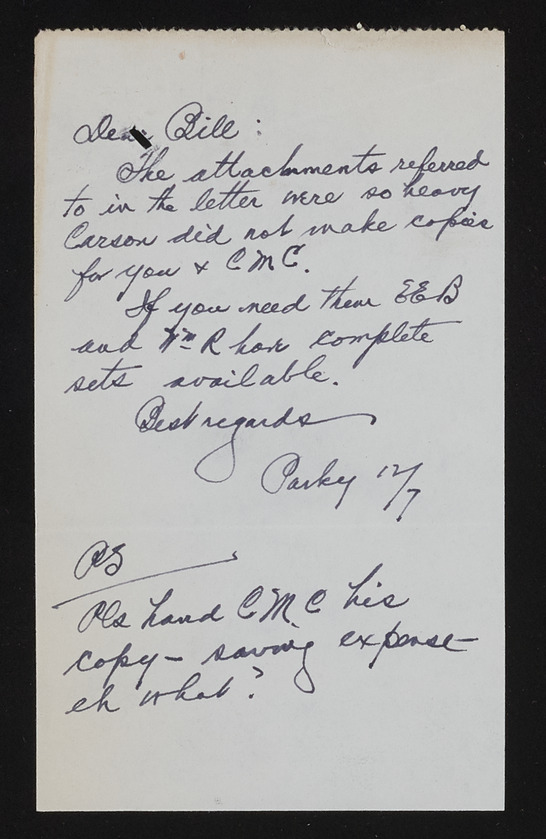 Dear Bill:
The attachments referred
to in the letter were so heavy
Carson did not make copies
for you & CMC.
If you need them EEB
and Wm R have complete
sets available.
Best regards
Parky 12/7
PS
Pls hand CMC his
copy - saving expense -
eh what?